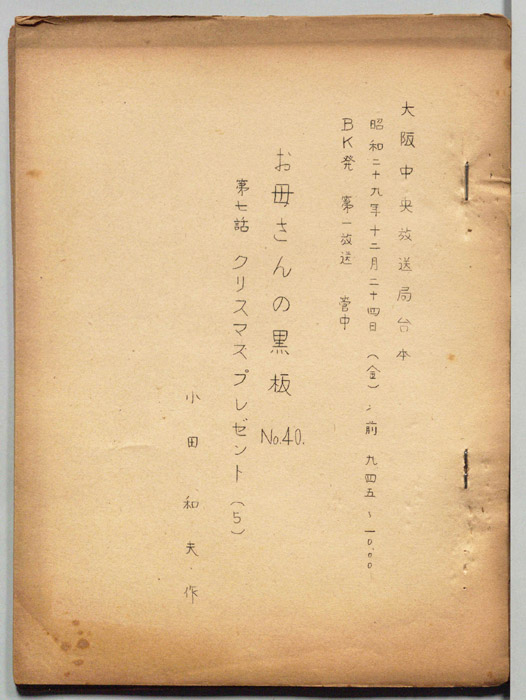 大阪中央放送局台本
昭和二十九年十二月二十四日（金）前九四五〜一〇.〇〇
BK発 第一放送 管中
お母さんの黒板 No.40.
第七話 クリスマスプレゼント（5）
小田和夫・作